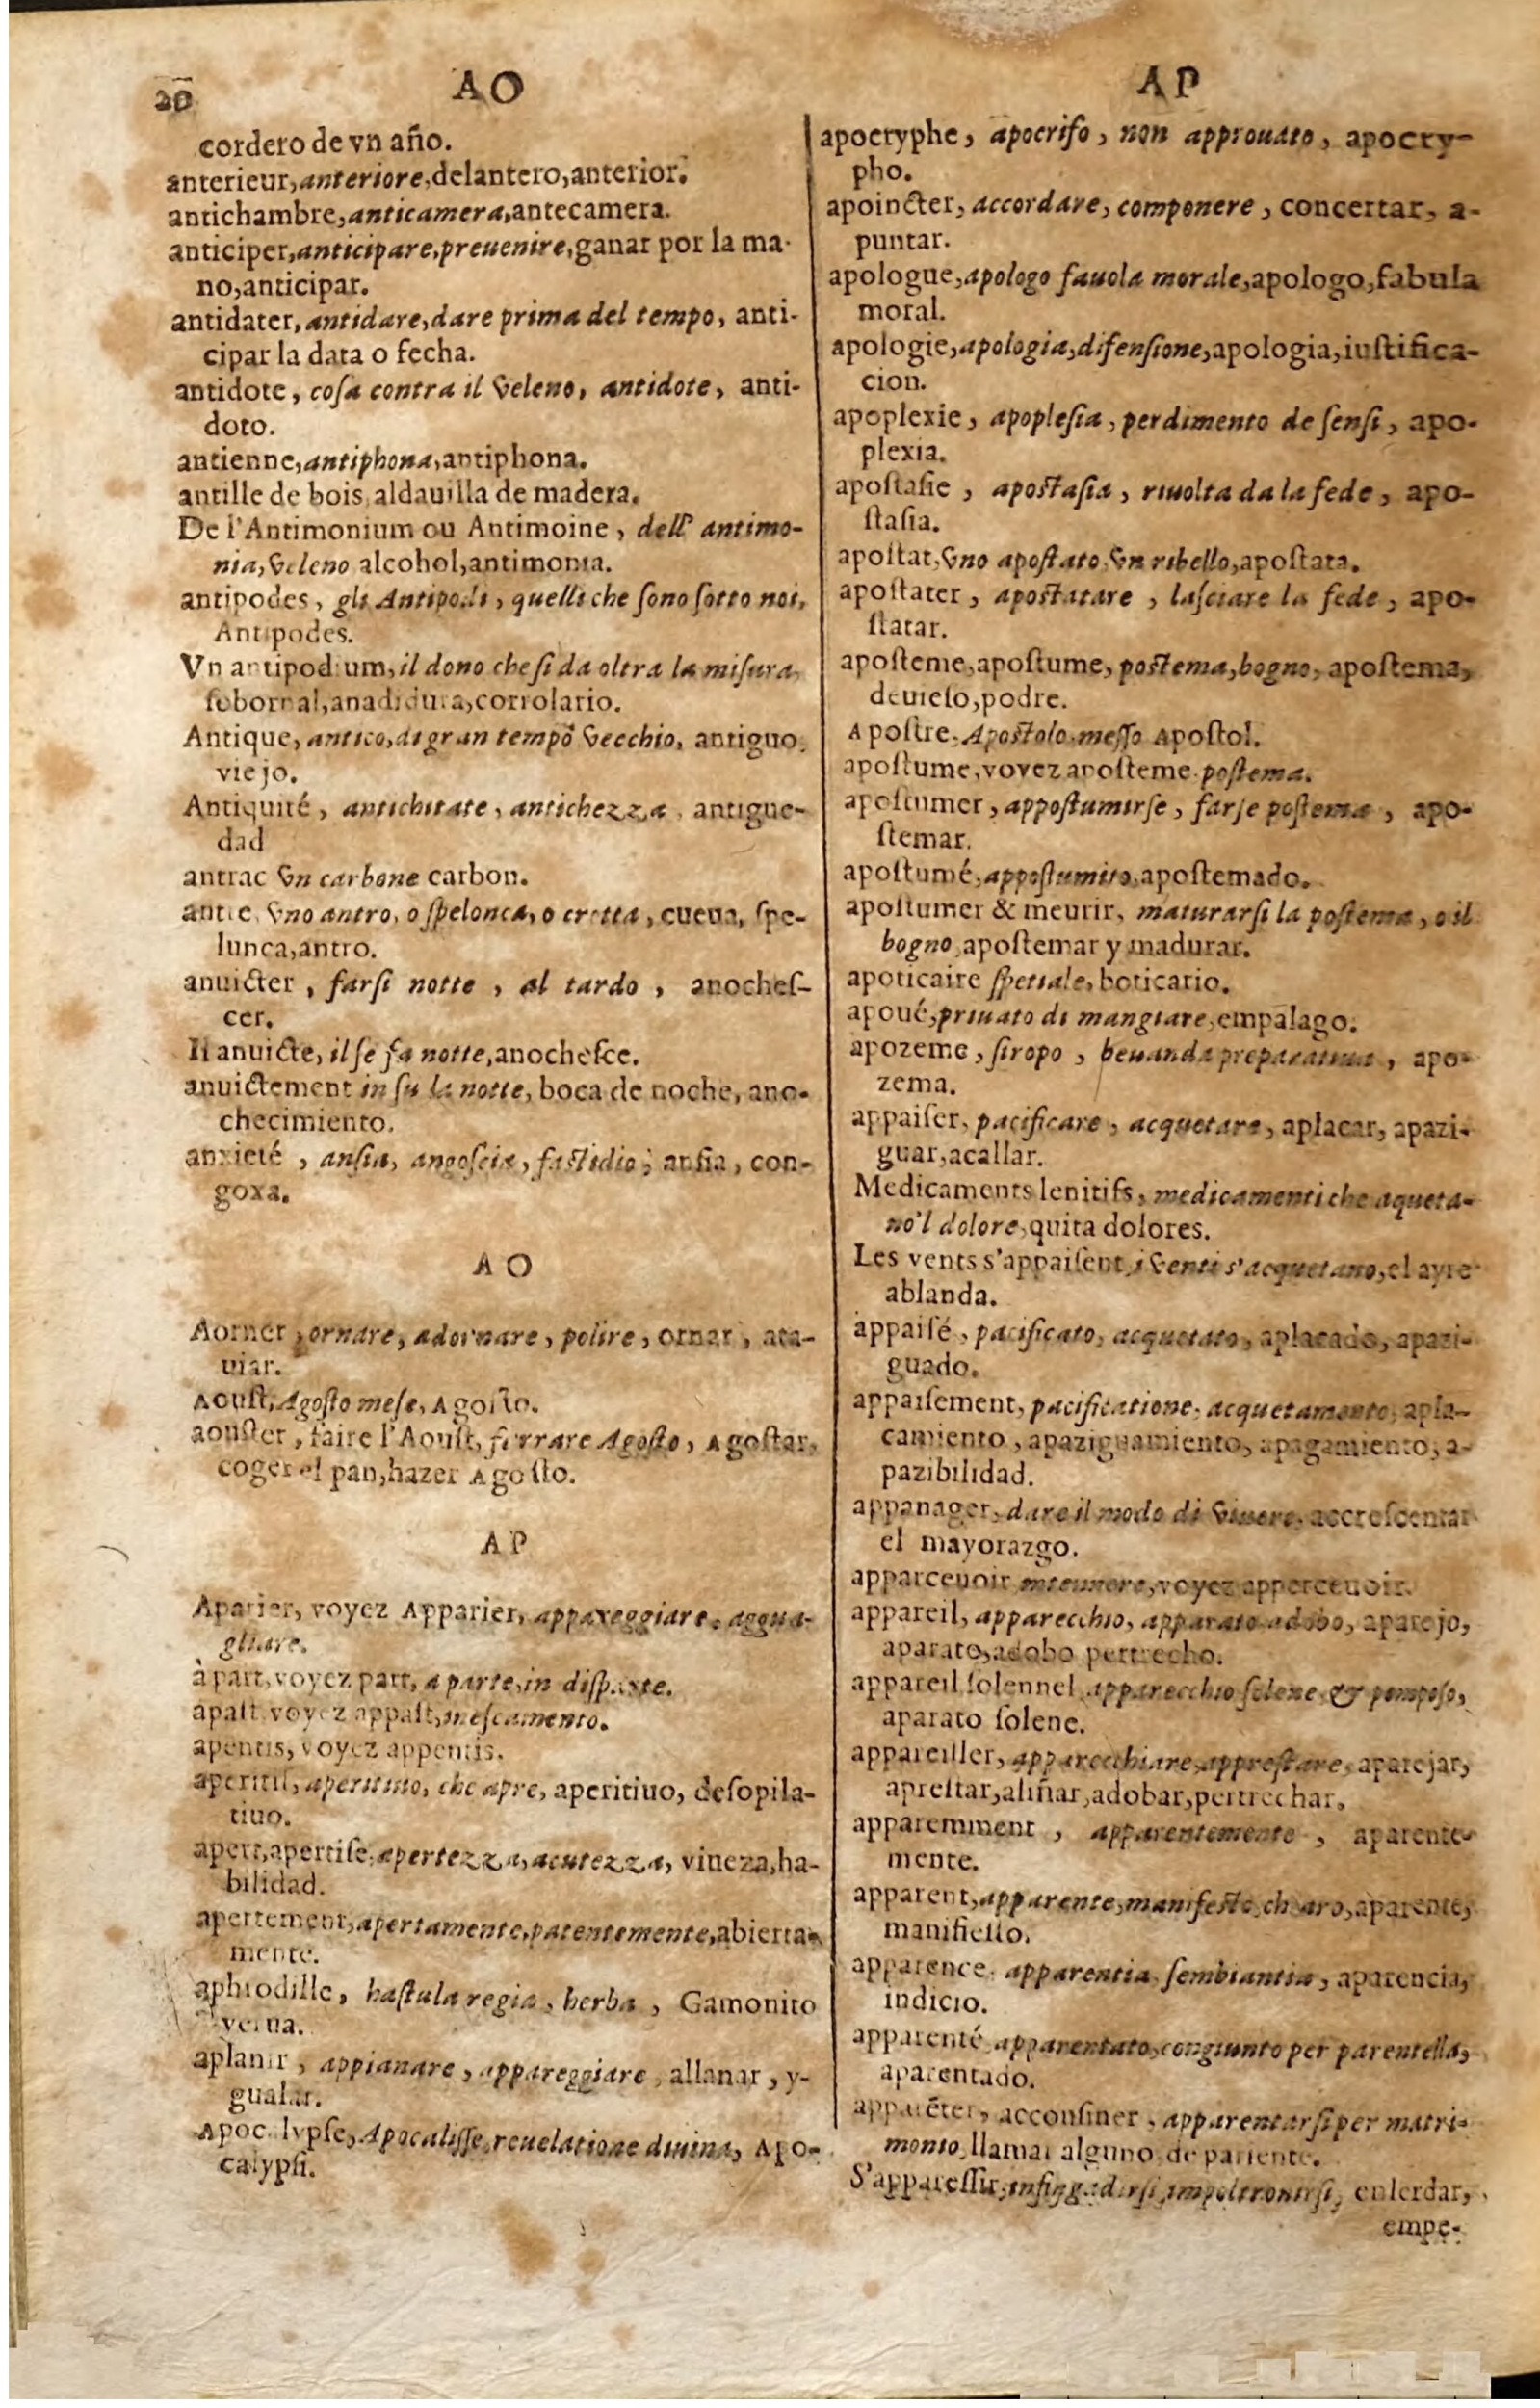 20
AO
cordero de vn año.
anterieur, anteriore, delantero, anterior.
antichambre, anticamera, antecamera.
anticiper, anticipare, preuenire, ganar por la ma-
no, anticipar.
antidater, antidare, dare prima del tempo, anti-
cipar la data o fecha.
antidote, coſa contra il veleno, antidote, anti-
doto.
antienne, antiphona, antiphona.
antille de bois, aldauilla de madera.
De l'Antimonium ou Antimoine, dell' antimo-
nia, veleno alcohol, antimonia.
antipodes, gli Antipodi, quelli che ſono ſotto noi,
Antipodes.
Vn antipodium, il dono che ſi da oltra la miſura,
ſobornal, anadidura, corrolario.
Antique, antico, di gran tempo vecchio, antiguo,
viejo.
Antiquité, antichitate, antichezza, antigue-
dad
antrac vn carbone carbon.
antre, vno antro, o ſpelonca, o crotta, cueua, ſpe-
lunca, antro.
anuicter, farſi notte, al tardo, anocheſ-
cer.
Il anuicte, il ſe fa notte, anocheſce.
anuictement in ſu la notte, boca de noche, ano-
checimiento.
anxieté, anſia, angoſcia, faſtidio, anſia, con-
goxa.
AO
Aorner, ornare, adornare, polire, ornar, ata-
uiar.
Aouſt, Agoſto meſe, Agoſto.
aouſter, faire l'Aouſt, ferrare Agoſto, Agoſtar,
coger el pan, hazer Agoſto.
AP
Aparier, voyez Apparier, appareggiare, aggua-
gliare.
à part, voyez part, a parte, in diſparte.
apaſt, voyez appaſt, ineſcamento.
apentis, voyez appentis.
aperitif, aperitiuo, che apre, aperitiuo, deſopila-
tiuo.
apert, apertiſe, apertezza, acutezza, viueza, ha-
bilidad.
apertement, apertamente, patentemente, abierta-
mente.
aphrodille, haſtula regia, herba, Gamonito
yerua.
aplanir, appianare, appareggiare, allanar, y-
gualar.
Apocalypſe, Apocaliſſe, reuelatione diuina, Apo-
calypſi.
AP
apocryphe, apocrifo, non approuato, apocry-
pho.
apoincter, accordare, componere, concertar, a-
puntar.
apologue, apologo fauola morale, apologo, fabula
moral.
apologie, apologia, difenſione, apologia, iuſtifica-
cion.
apoplexie, apopleſia, perdimento de ſenſi, apo-
plexia.
apoſtaſie, apoſtaſia, riuolta da la fede, apo-
ſtaſia.
apoſtat, vno apoſtato, vn ribello, apoſtata.
apoſtater, apoſtatare, laſciare la fede, apo-
ſtatar.
apoſteme, apoſtume, poſtema, bogno, apoſtema,
deuieſo, podre.
Apoſtre, Apoſtolo, meſſo Apoſtol.
apoſtume, voyez apoſteme poſtema.
apoſtumer, appoſtumirſe, farſe poſtema, apo-
ſtemar.
apoſtumé, appoſtumito, apoſtemado.
apoſtumer & meurir, maturarſi la poſtema, o il
bogno, apoſtemar y madurar.
apoticaire ſpetiale, boticario.
apoué, priuato di mangiare, empalago.
apozeme, ſiropo, beuanda preparatiua, apo-
zema.
appaiſer, pacificare, acquetare, aplacar, apazi-
guar, acallar.
Medicaments lenitifs, medicamenti che aqueta-
no'l dolore, quita dolores.
Les vents s'appaiſent, i venti s'acquetano, el ayre
ablanda.
appaiſé, pacificato, acquetato, aplacado, apazi-
guado.
appaiſement, pacificatione, acquetamento, apla-
camiento, apaziguamiento, apagamiento, a-
pazibilidad.
appanager, dare il modo di viuere, accreſcentar
el mayorazgo.
apparceuoir, voyez apperceuoir.
appareil, apparecchio, apparato adobo, aparejo,
aparato, adobo pertrecho.
appareil ſolennel, apparecchio ſolene & pompoſo,
aparato ſolene.
appareiller, apparecchiare, appreſtare, aparejar,
apreſtar, aliñar, adobar, pertrechar.
apparemment, apparentemente, aparente-
mente.
apparent, apparente, manifeſto, chiaro, aparente,
manifieſto.
apparence, apparentia, ſembiantia, aparencia,
indicio.
apparenté, apparentato, congiunto per parentella,
aparentado.
apparẽter, acconſiner, apparentarſi per matri-
monio, llamar alguno de pariente.
S'appareſſir, infingardirſi, impoltronirſi, enlerdar,
empe-